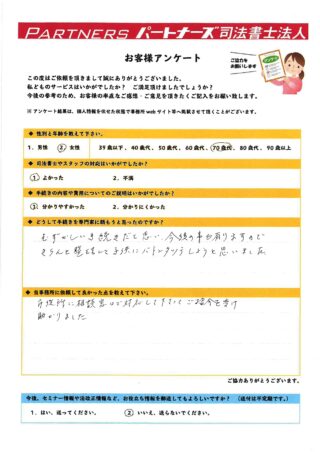 PARTNERS パートナーズ司法書士法人
お客様アンケート
ご協力を
お願いします
この度はご依頼を頂きまして誠にありがとうございました。
私どものサービスはいかがでしたか? ご満足頂けましたでしょうか?
今後の参考のため、お客様の率直なご感想・ご意見を頂きたくご記入をお願い致します。
※ アンケート結果は、個人情報を伏せた状態で事務所 web サイト等へ掲載させて頂くことがございます。
◆ 性別と年齢を教えて下さい。
1. 男性 2. 女性 39歳以下、40歳代、50歳代、60歳代、70歳代、80歳代、90歳以上
◆ 司法書士やスタッフの対応はいかがでしたか?
1. よかった 2. 不満
◆ 手続きの内容や費用についてのご説明はいかがでしたか?
1. 分かりやすかった 2. 分かりにくかった
◆ どうして手続きを専門家に頼もうと思ったのですか?
むずかしい手続きだと思い、今後の事も有りますので
きちんと整とんして子供にバトンタッチしようと思いました
◆ 当事務所に依頼して良かった点を教えて下さい。
市役所に相談窓口が
ご紹介を受け
助かりました
ご協力ありがとうございます。
今後、セミナー情報や法改正情報など、お役立ち情報を郵送してもよろしいですか? (送付は不定期です。)
1. はい、送ってください。 2. いいえ、送らないでください。